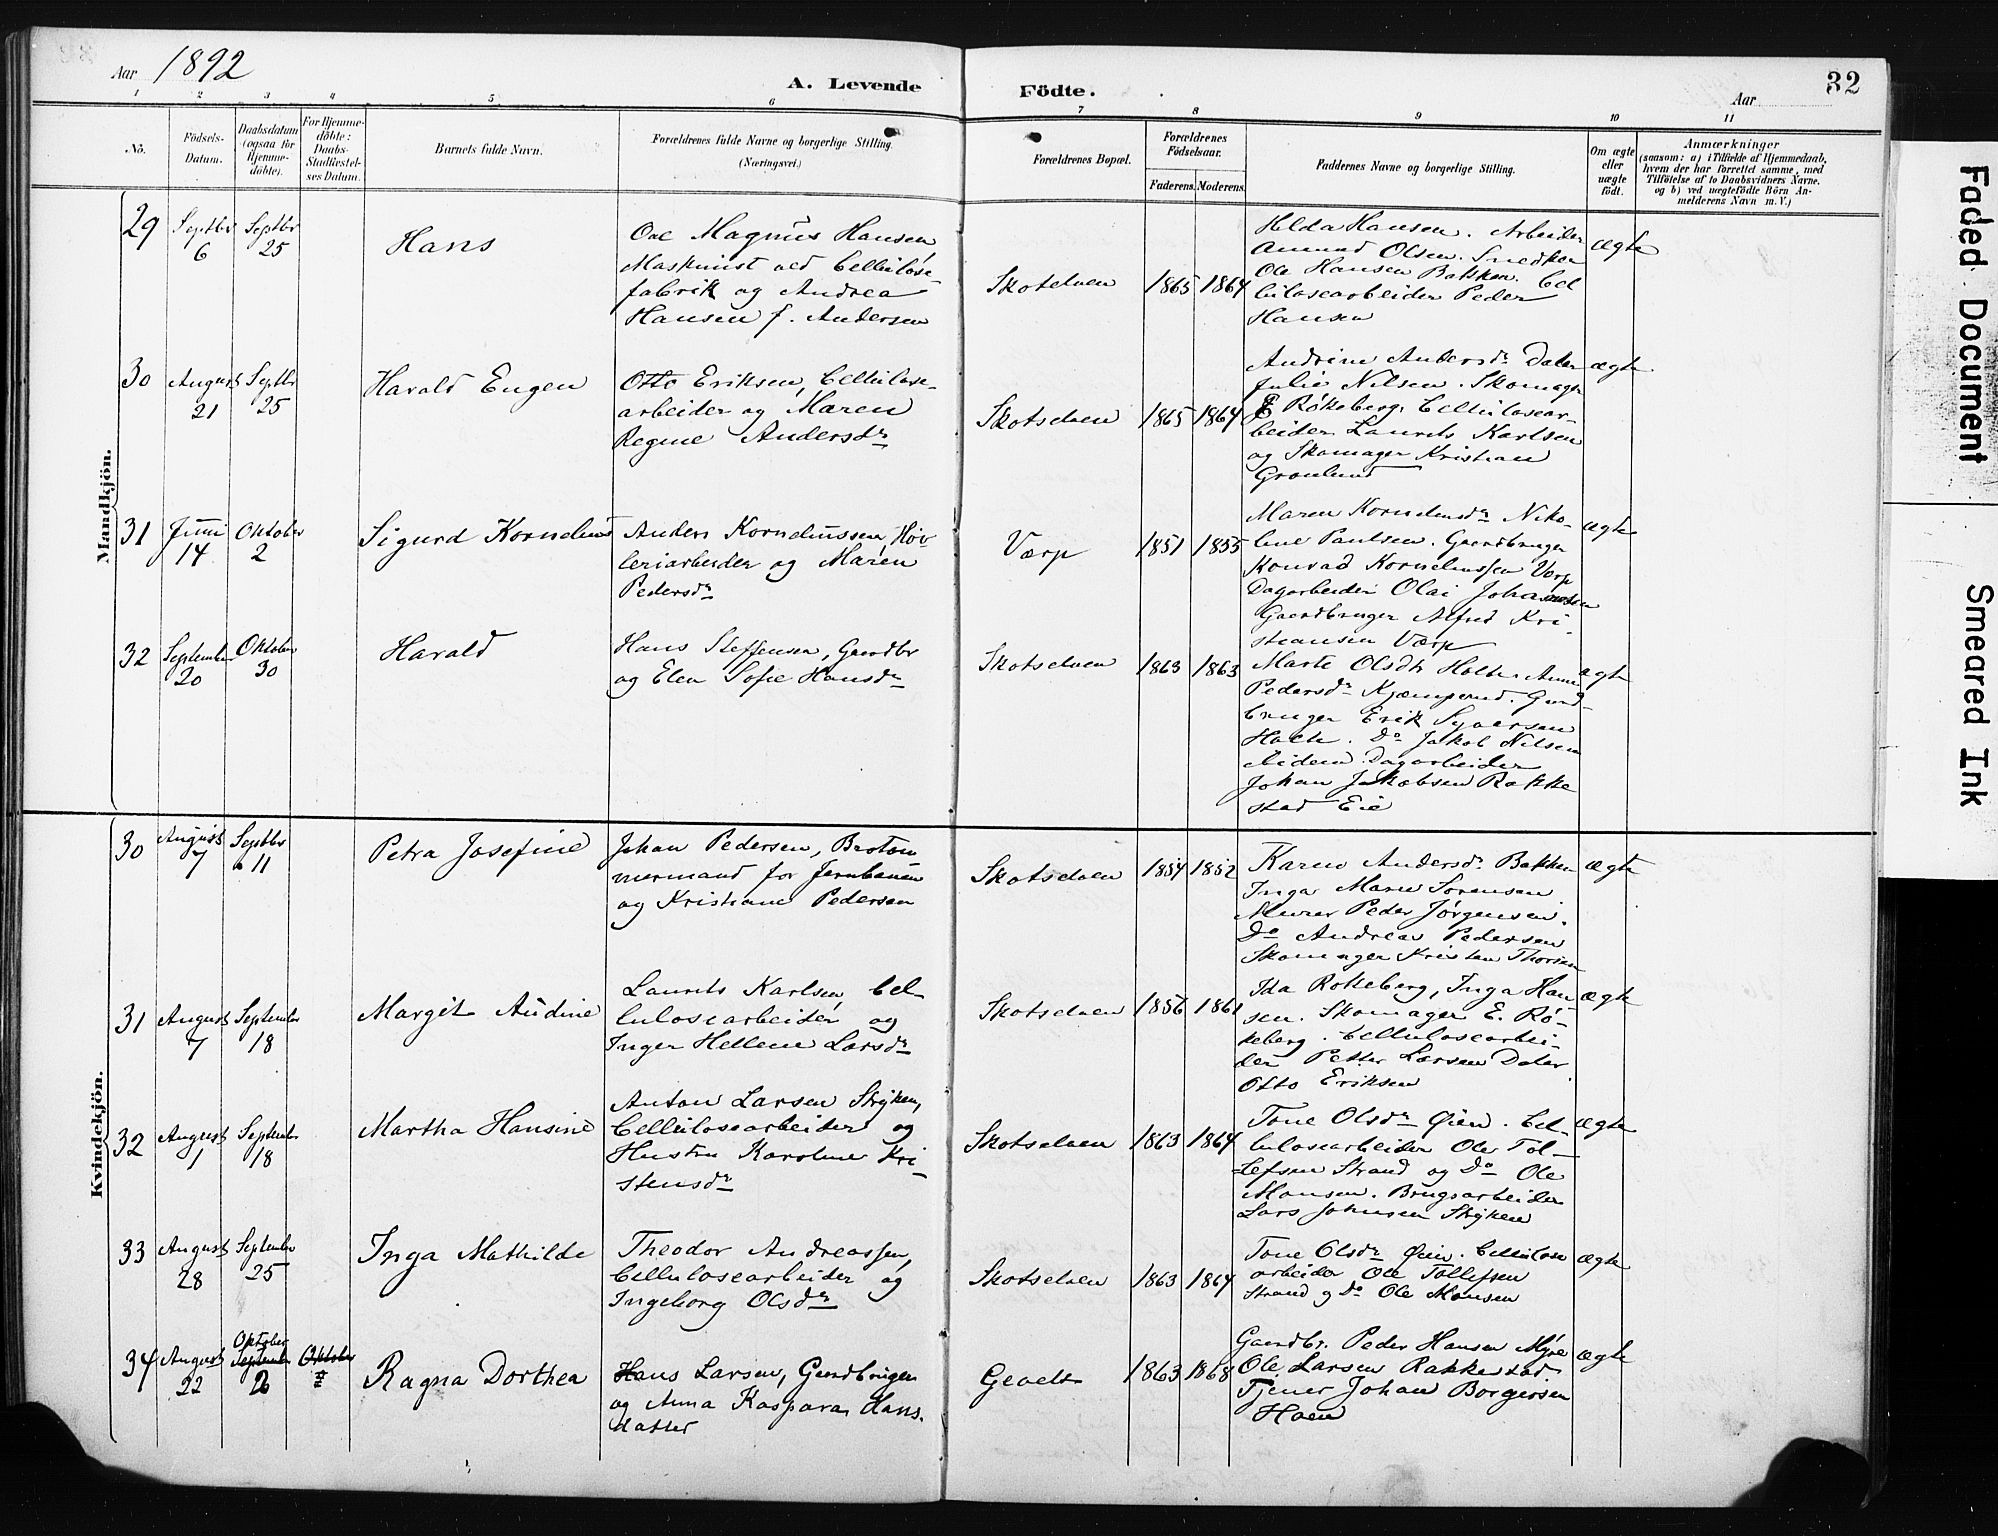 Aar 1892
A. Levende Födte.
Aar 32
1 2 3 4 5 6 7 8 9 10 11
No.
Födsels-
Datum.
Daabsdatum
(ogsaa for
Hjemme-
döbte).
For Hjemme-
döbte:
Daabs-
Stadfæstel-
ses Datum.
Barnets fulde Navn.
Forældrenes fulde Navne og borgerlige Stilling.
(Næringsvei.)
Forældrenes Bopæl.
Forældrenes
Födselsaar.
Faderens. Moderens.
Faddernes Navne og borgerlige Stilling.
Om ægte
eller
uægte
födt.
Anmærkninger
(saasom: a) i Tilfælde af Hjemmedaab,
hvem der har forrettet samme, med
Tilföielse af to Daabsvidners Navne,
og b) ved uægtefödte Börn An-
melderens Navn m. V.)
Mandkjön.
29
Septbr
6
Septbr
25
Hans
Ole Magnus Hansen
Maskinist ved Cellulose-
fabrik og Andrea
Hansen f. Andersen
Skotselven
1865 1864
Helda Hansen. Arbeider
Amund Olsen. Snedker
Ole Hansen Bakken. Cel
lulosearbeider Peder
Hansen
ægte
30
August
21
Septbr
25
Harald Eugen
Otto Eriksen, Cellulose-
arbeider og Maren
Regine Andersdr
Skotselven
1865 1864
Andrine Andersdr Daler
Julie Nilsen. Skomager
E Røkeberg. Cellulosear-
beider Laurits Karlsen
og Skomager Kristian
Grønlund
ægte
31
Juni
14
Oktober
2
Sigurd Kornelius
Anders Korneliussen, Høv
leriarbeider og Maren
Pedersdr
Værp
1851 1855
Maren Korneliusdr Niko-
line Paulsen. Gaardbruger
Konrad Korneliussen Værp
Dagarbeider Olai Johannesen
Gaardbruger Alfred Kri-
stiansen Værp
ægte
32
September
20
Oktober
30
Harald
Hans Steffensen, Gaardbr
og Elen Sofie Hansdr
Skotselven
1863 1863
Marte Olsdtr Holte. Anne
Pedersdr Kjæmperud. Gard-
bruger Erik Syversen
Holte. Do Jakob Nilsen
Dagarbeider
Johan Jakobsen Rakke
stad Eie
ægte
Kvindekjön.
30
August
7
Septbr
11
Petra Josefine
Johan Pedersen, Brotøm
mermand for Jernbanen
og Kristiane Pedersen
Skotselven
1854 1852
Karen Andersdr Bakken
Inga Marie Sørensen
Murer Peder Jørgensen.
Do Andreas Pedersen
Skomager Kristen Thorsen
ægte
31
August
7
September
18
Margit Audine
Laurits Karlsen, Cel-
lulosearbeider og
Inger Hellene Larsdr
Skotselven
1856 1861
Ida Røkeberg, Inga Han
sen. Skomager E. Rø-
keberg. Cellulosearbei-
der Petter Larsen Daler
Otto Eriksen
ægte
32
August
1
September
18
Martha Hansine
Anton Larsen Stryken,
Cellulosearbeider og
Hustru Karoline Kri
stensdr
Skotselven
1863 1864
Tone Olsdr Øien. Cel-
lulosearbeider Ole Tol-
lefsen Strand og Do Ole
Monsen. Brugsarbeider
Lars Johnsen Stryken
ægte
33
August
28
September
25
Inga Mathilde
Theodor Andreassen,
Cellulosearbeider og
Ingeborg Olsdr
Skotselven
1863 1864
Tone Olsdr Øien. Cellulose
arbeider Ole Tollefsen
Strand og Do Ole Monsen
ægte
34
August
22
Oktober
September
2
Oktober
Ragna Dorthea
Hans Larsen, Gaardbruger
og Anna Kaspara Hans-
datter
1863 1868
Gaardbr. Peder Hansen Myre
Ole Larsen Rakkestad
Tjener Johan Borgersen
Hoen
ægte
Faded Document
Smeared Ink